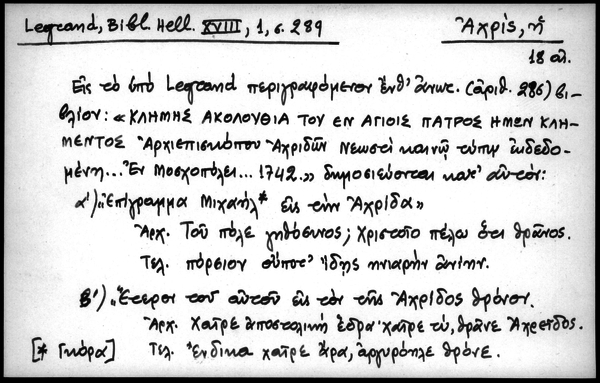 Legrand, Bibl. Hell. XVIII, 1, σ. 289
Ἀχρίς, ἡ
18 αἰ.
Εἰς τὸ ὑπὸ Legrand περιγραφόμενον ἔνθ' ἄνωτ. (ἀριθ. 286) βι-
βλίον: «ΚΛΗΜΗΣ ΑΚΟΛΟΥΘΙΑ ΤΟΥ ΕΝ ΑΓΙΟΙΣ ΠΑΤΡΟΣ ΗΜΩΝ ΚΛΗ-
ΜΕΝΤΟΣ Ἀρχιεπισκόπου Ἀχριδῶν νεωστὶ καινῷ τύπῳ ἐκδεδο-
μένη... Ἐν Μοσχοπόλει... 1742.» δημοσιεύονται κατ' αὐτόν:
α') «Ἐπίγραμμα Μιχαὴλ* εἰς τὴν Ἀχρίδα»
Ἀρχ. Τοῦ πόλε γηθόσυνος; Χριστοῖο πέλω ὅτι θρᾶνος.
Τελ. πόρσιον οὔποτ' ἴδῃς ἡνιαρὴν ἀνίην.
β') «Ἕτεροι τοῦ αὐτοῦ εἰς τὸν τῆς Ἀχρίδος θρόνον.
Ἀρχ. Χαῖρε ἀποστολικὴ ἕδρα· χαῖρε τύ, θρᾶνε Ἀχρείδος.
[* Γκόρα]
Τελ. Ἔνδικα χαῖρε ἄρα, ἀργυρόηλε θρόνε.